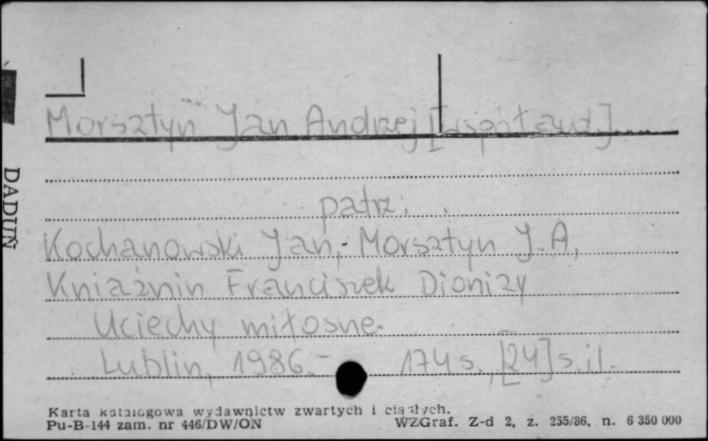 Morsztyn Jan Andrzej [współaut.]
patrz:
Kochanowski Jan, Morsztyn J. A,
Kniaźnin Franciszek Dionizy
Uciechy miłosne.
Lublin, 1986. – 174 s., [24] s. il.
Karta katalogowa wydawnictw zwartych i ciągłych.
Pu-B-144 zam. nr 446/DW/ON WZGraf. Z-d 2, z. 255/86, n. 6 350 000
DADUŃ